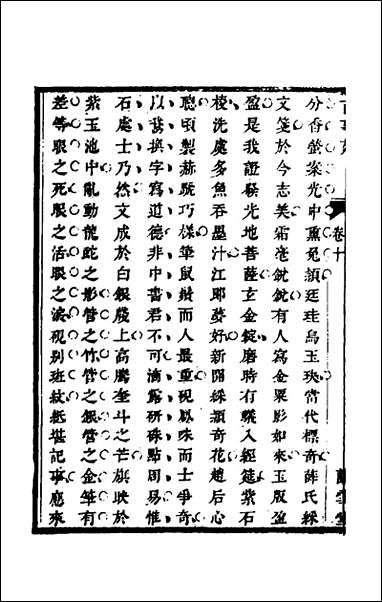 卷十
分香螢案光中熏兔頴廷珪烏玉玦當代標奇薛氏綵
文箋於今志美霜毫銳銳有人寫金粟影如來玉版盈
盈是我證聚光地菩薩玄金錠磨時有蟻入經筵紫石
稜洗處多魚吞墨汁江耶夢好新開綵頴奇花趙后心
聰頃製赫蹏巧樣筆鼠辦而人最重硯以味而士爭奇
以發揆字寫道德非中書君不可滴露研硃點周易惟
石處士乃然文成於白銀牋上高騰奎斗之芒旗映於
紫玉池中亂動龍蛇之影管之竹管之銀管之金筆有
差等眼之死眼之活眼之淚視別斑紋紙堪記事應來